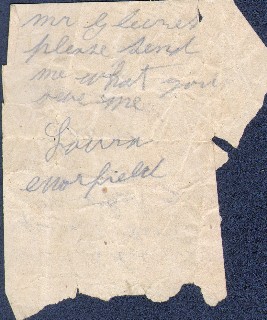 mr
please send
me what you
owe me
Laura
morfield